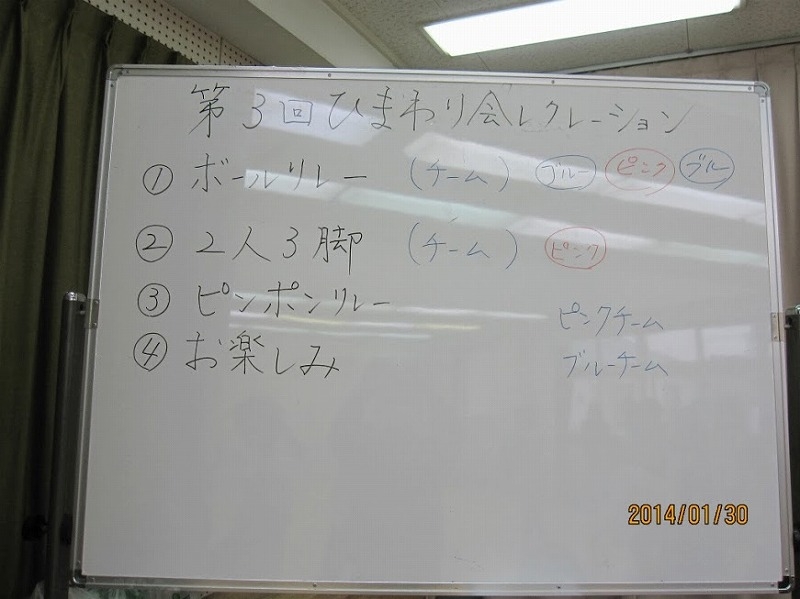 第3回ひまわり会レクレーション
① ボールリレー (チーム) ブルー ピンク ブルー
② 2人3脚 (チーム) ピンク
③ ピンポンリレー
ピンクチーム
④ お楽しみ
ブルーチーム
2014/01/30